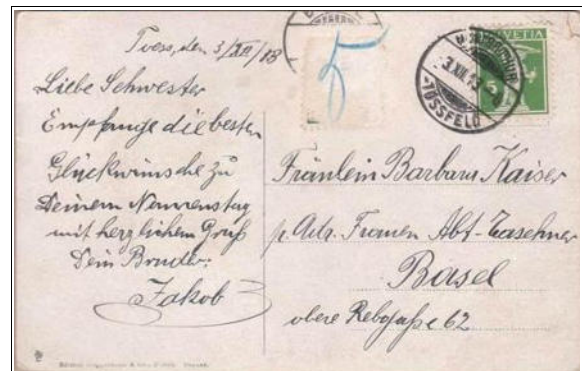 Toess, den 3/XII/18
Liebe Schwester
Empfange die besten
Glückwünsche zu
Deinem Namenstag
mit herzlichem Gruß
Dein Bruder:
Jakob
HELVETIA
3.XII.18
-TÖSSFELD
5
Fräulein Barbara Kaiser
p. Adr. Frauen Abt-Taschner
Basel
obere Rebgaße 62